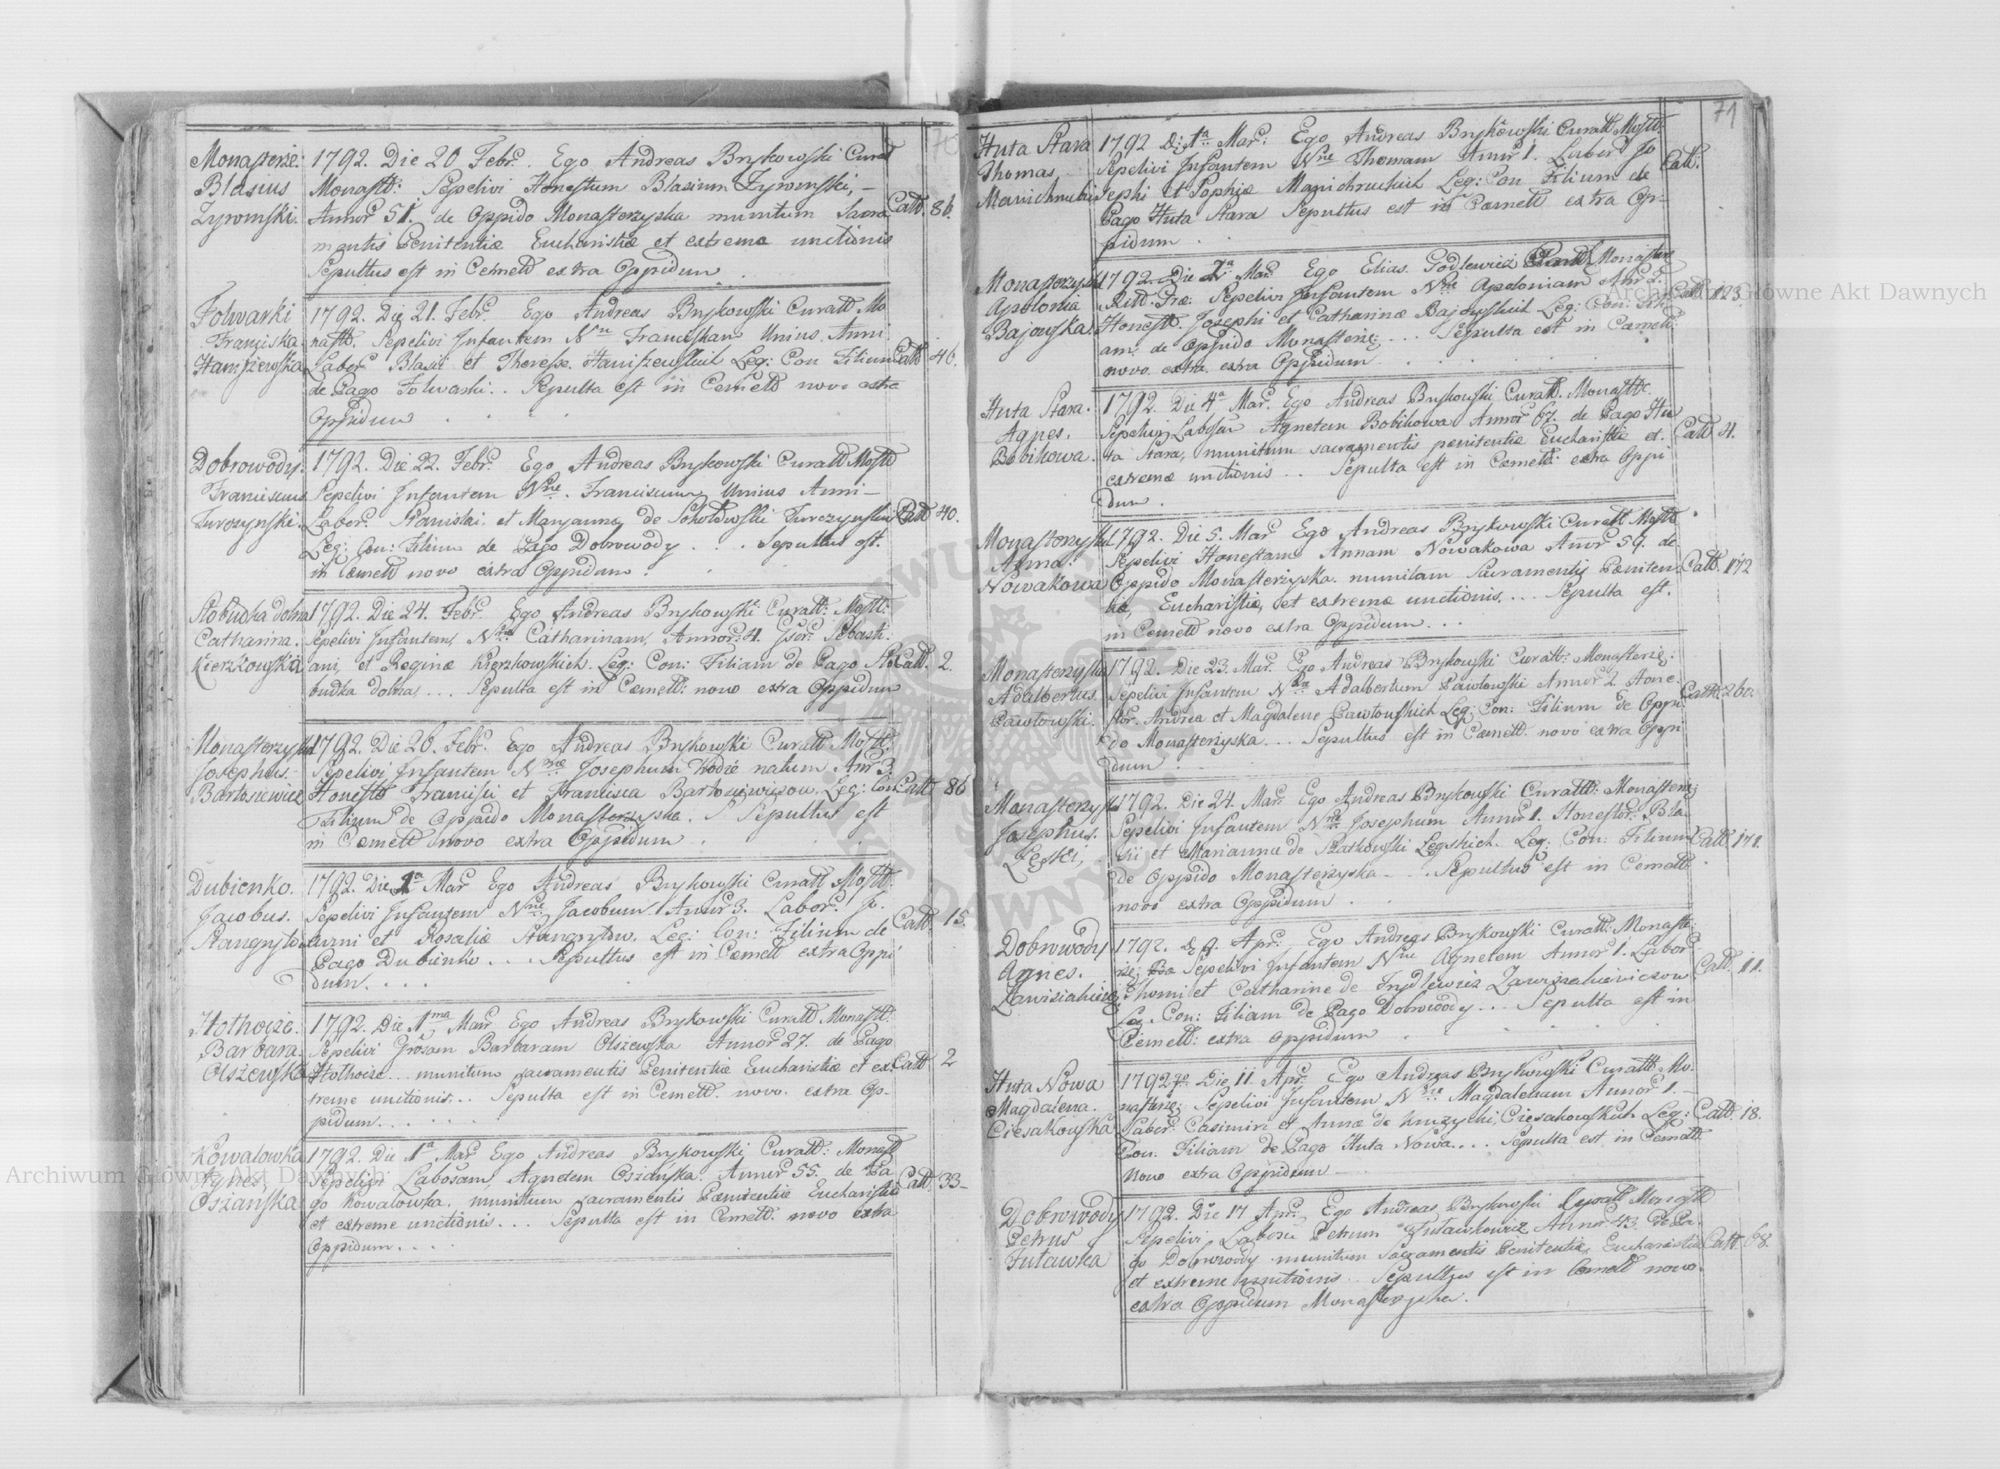 70
Monasterże:
Blasius
Zyromski.
1792. Die 20 Febr. Ego Andreas Brykowski Curat
Monastt: Sepelivi Honestum Blasium Zyromski, –
Annor 51. de Oppido Monasterzyska munitum Sacra
mentis Penitentiæ Eucharistiæ et extrema unctionis
Sepultus est in Cemett extra Oppidum
Catt. 86.
Folwarki
Franciska
Haniszewska
1792. Die 21. Febr. Ego Andreas Brykowski Curatt Mo
nastt. Sepelivi Infantem Nne Franciskam Unius Anni
Labor Blasii et Theresæ Haniszewskich Leg: Con Filiam
de Pago Folwarki . . Sepulta est in Cemett novo extra
Oppidum
Catt 46.
Dobrowody.
Franciscus
Turczynski.
1792. Die 22. Febr. Ego Andreas Brykowski Curatt Mostt
Sepelivi Infantem Nne. Franciscum Unius Anni –
Labor. Stanislai et Mariannæ de Sokołowski Turczynskich
Leg: Con: Filium de Pago Dobrowody . . . Sepultus est.
in Cemett novo extra Oppidum.
Catt 40.
Słobudka dolna
Catharina.
Kierzkowska
1792. Die 24. Febr. Ego Andreas Brykowski Curatt: Mostt:
Sepelivi Infantem, Nne Catharinam, Annor: 4. Gsor: Sebasti
ani, et Reginæ Kierzkowskich. Leg: Con: Filiam de Pago Sło
budka dolna, . . . Sepulta est in Cemett: novo extra Oppidum
Catt. 2.
Monasterzyska
Josephus.
Bartosiewicz
1792. Die 26. Febr. Ego Andreas Brykowski Curatt Mostt:
Sepelivi Infantem Nne Josephum hodie natum Anr 3
Honesto Francisci et Francisca Bartosiewiczow. Leg: Con
Filium de Oppido Monasterzyska. Sepultus est
in Cemett novo extra Oppidum
Catt 86
Dubienko.
Jacobus.
Stangrytow
1792. Die 1a Mar Ego Andreas Brykowski Curatt Mostt:
Sepelivi Infantem Nne Jacobum Annor 3. Labor. Jo.
anni et Rosaliæ Stangrytow. Leg: Con: Filium de
Pago Dubienko . . . Sepultus est in Cemett extra Oppi
dum. . . .
Catt. 15.
Hothoiże.
Barbara.
Olszewska
1792. Die 1ma Mar Ego Andreas Brykowski Curatt Monastt:
Sepelivi Gsosam Barbaram Olszewska Annor 27. de Pago
Hothoiże . . . munitum sacramentis Penitentiæ Eucharistiæ et ex
treme unctionis. . . Sepulta est in Cemett. novo. extra Op-
pidum. . . .
Catt 2
Kowalowka
Agnes,
Osżanska
1792. Die 1a Mar Ego Andreas Brykowski, Curatt: Monastt
Sepelivi Labosam, Agnetem Osżanska. Annor 55. de Pa
go Kowalowka. munitum sacramentis Penitentiæ Eucharistiæ
et extreme unctionis . . . Sepulta est in Cemett. novo extra
Oppidum. . . .
Catt 33–
71
Huta Stara
Thomas,
Manichruhi
1792 Di: 1a Mar: Ego Andreas Brykowski Curatt Mostt:
Sepelivi Infantem Nne Thomam Annor 1. Labor Jo
sephi et Sophiæ Manichruchich Leg: Con Filium de
Pago Huta Stara Sepultus est in Cemett extra Op-
pidum
Catt.
Monasterzyska
Apolonia
Bajowska
1792. Die 2a Mar Ego Elias Godlewicz Monaster
Ritt: Præ: Sepelivi Infantem Nne Apoloniam Anr 2.
Honestt. Josephi et Catharinæ Bajowskich Leg: Con: Fili
am: de Oppido Monasterię . . . Sepulta est in Cemett.
novo. extra extra Oppidum
Catt 123.
Huta Stara.
Agnes.
Bobikowa.
1792. Die 4a Mar. Ego Andreas Brykowski Curatt. Monastt
Sepelivi Labosam Agnetem Bobikowa Annor 67. de Pago Hu
ta Stara, munitum sacramentis penitentiæ Eucharistiæ et.
extremæ unctionis . . Sepulta est in Cemett: extra Oppi
dum .
Catt 4.
Monasterzyska
Anna.
Nowakowa
1792. Die 5. Mar Ego Andreas Brykowski Curatt Mostt
Sepelivi Honestam Annam Nowakowa Annor 59. de
Oppido Monasterżyska. munitam Sacramentis Peniten
tiæ, Eucharistiæ, et extremæ unctionis. . . . Sepulta est.
in Cemett novo extra Oppidum. . . .
Catt. 172
Monasterzyska
Adalbertus.
Pawłowski.
1792. Die 23. Mar. Ego Andreas Brykowski Curatt: Monasterię:
Sepelivi Infantem Nne Adalbertum Pawłowski Annor 2 Hone
stor. Andrea et Magdalene Pawłowskich Leg: Con: Filium de Oppi
do Monasterżyska . . . Sepultus est in Cemett. novo extra Oppi
dum .
Catt. 260.
Monasterzyska
Josephus.
Lęski,
1792. Die 24. Mar. Ego Andreas Brykowski Curattt: Monasterię
Sepelivi Infantem Nne Josephum Annor 1. Honestor. Bla
sii et Marianna de Szatkowski Leskich. Leg: Con: Filium
de Oppido Monasterzyska – . . Sepultus est in Cemett
novo extra Oppidum
Catt 171.
Dobrowody
Agnes.
Zawisiakiewicz
1792. D 9. Apr. Ego Andreas Brykowski Curatt: Monaste
rię: Sepelivi Infantem Nne Agnetem Annor 1. Labor
Thomi et Catharine de Jrydlewicz Zawiszakiewiczow
Leg. Con: Filiam de Pago Dobrowody . . . Sepulta est in
Cemett: extra Oppidum
Catt. 11.
Huta Nowa
Magdalena.
Ciesakowska
1792go. Die 11. Apr. Ego Andreas Brykowski Curatt Mo-
nasterię: Sepelivi Infantem Nne Magdalenam Annor 1. –
Labor Casimiri et Annæ de Kruzycki, Ciesakowskich Leg:
Con. Filiam de Pago Huta Nowa. . . Sepulta est, in Cemett.
Novo extra Oppidum
Catt. 18.
Dobrowody
Petrus
Jutawka
1792. Die 17 Apr. Ego Andreas Brykowski Curatt Monastt
Sepelivi Labosu Petrum Jutawkowicz Annor 43. de Pa.
go Dobrowody munitum Sacramentis Penitentiæ, Eucharistiæ
et extreme unctionis . . Sepultus est in Cemett novo.
extra Oppidum Monasterzyska.
Catt. 68.
Archiwum Główne Akt Dawnych
Archiwum Główne Akt Dawnych